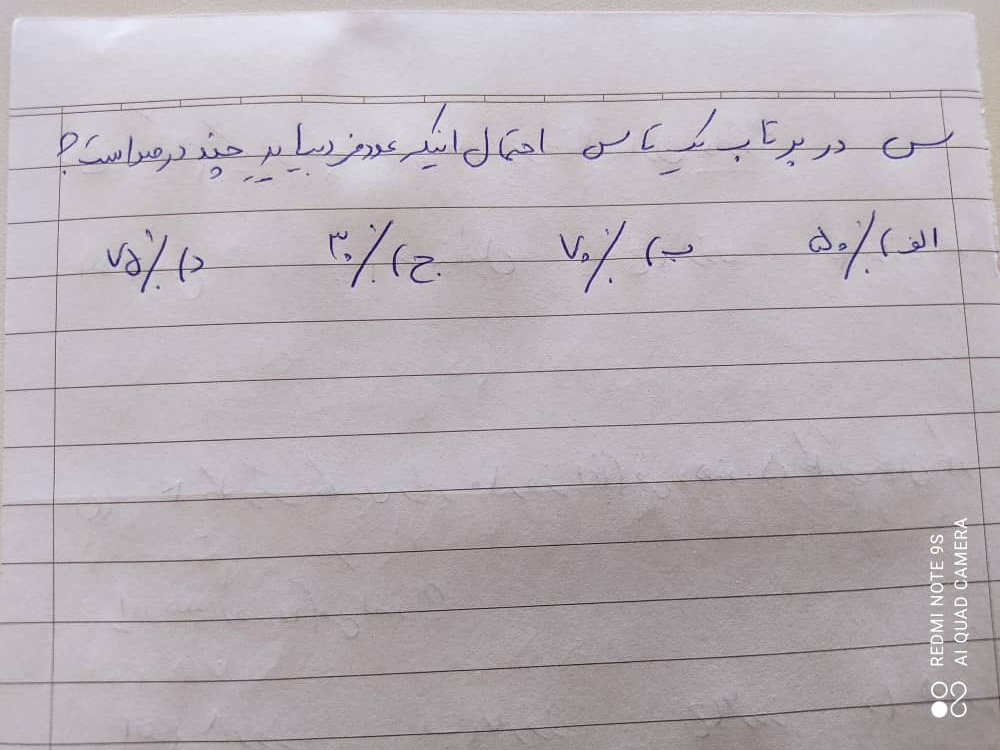 س در پرتاب یک تاس احتمال اینکه عدد فرد بیاید چند درصد است؟
الف) ۵۰٪ ب) ۷۰٪ ج) ۳۰٪ د) ۷۵٪
REDMI NOTE 9S
AI QUAD CAMERA